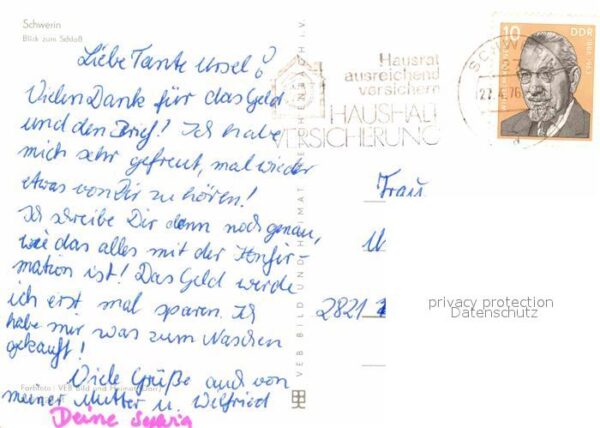 Schwerin
Blick zum Schloß
Liebe Tante Ursel!
Vielen Dank für das Geld
und den Brief! Ich habe
mich sehr gefreut, mal wieder
etwas von Dir zu hören!
Ich schreibe Dir dann noch genau,
wie das alles mit der Konfir-
mation ist! Das Geld werde
ich erst mal sparen. Ich
habe mir was zum Naschen
gekauft!
Viele Grüße auch von
meiner Mutter u. Wilfried
Deine
Farbfoto: VEB Bild und Heimat
VEB BILD UND HEIMAT REICHENBACH I. V.
Hausrat
ausreichend
versichern
HAUSHALT
VERSICHERUNG
SCHWE
27
10
DDR
Frau
2821
privacy protection
Datenschutz